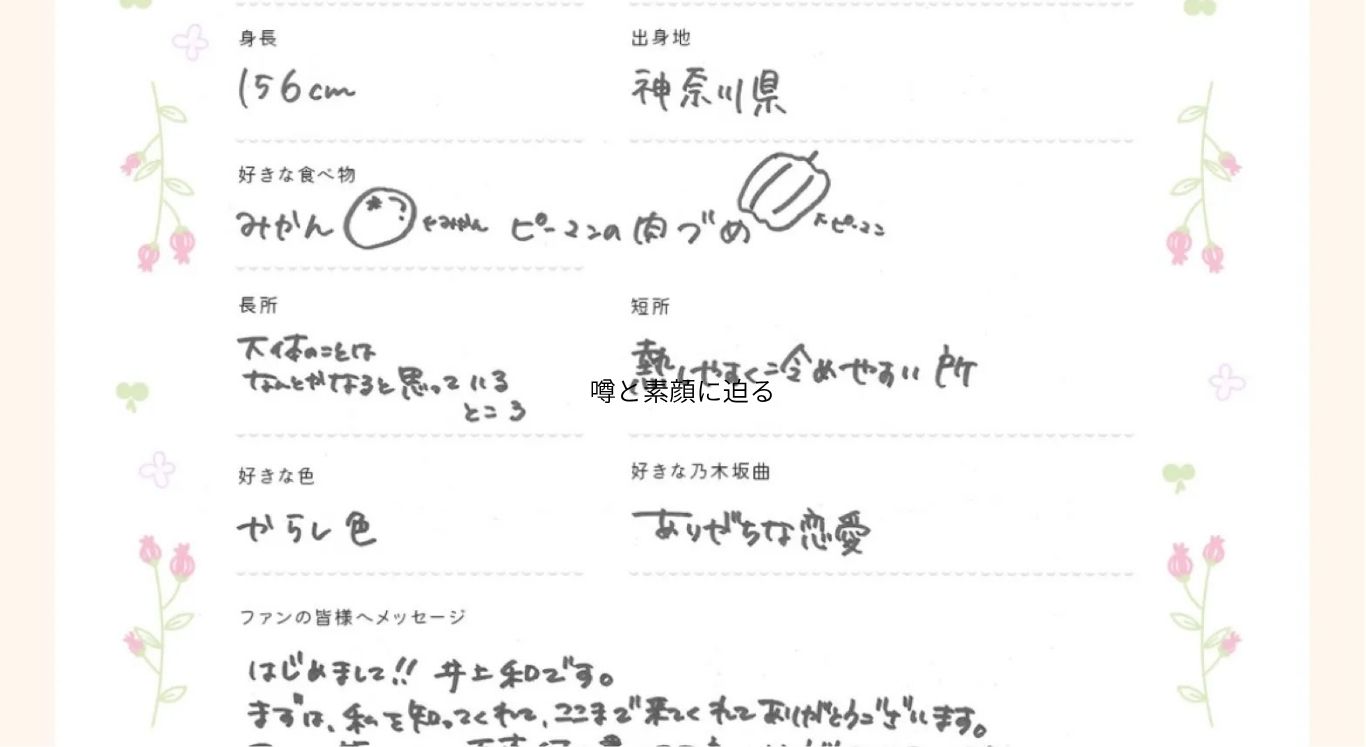 身長
156cm
出身地
神奈川県
好きな食べ物
みかん ←みかん ピーマンの肉づめ ←ピーマン
長所
大体のことは
なんとかなると思っている
ところ
短所
熱しやすく冷めやすい所
噂と素顔に迫る
好きな色
からし色
好きな乃木坂曲
ありがちな恋愛
ファンの皆様へメッセージ
はじめまして!! 井上和です。
まずは、私を知ってくれて、ここまで来てくれてありがとうございます。